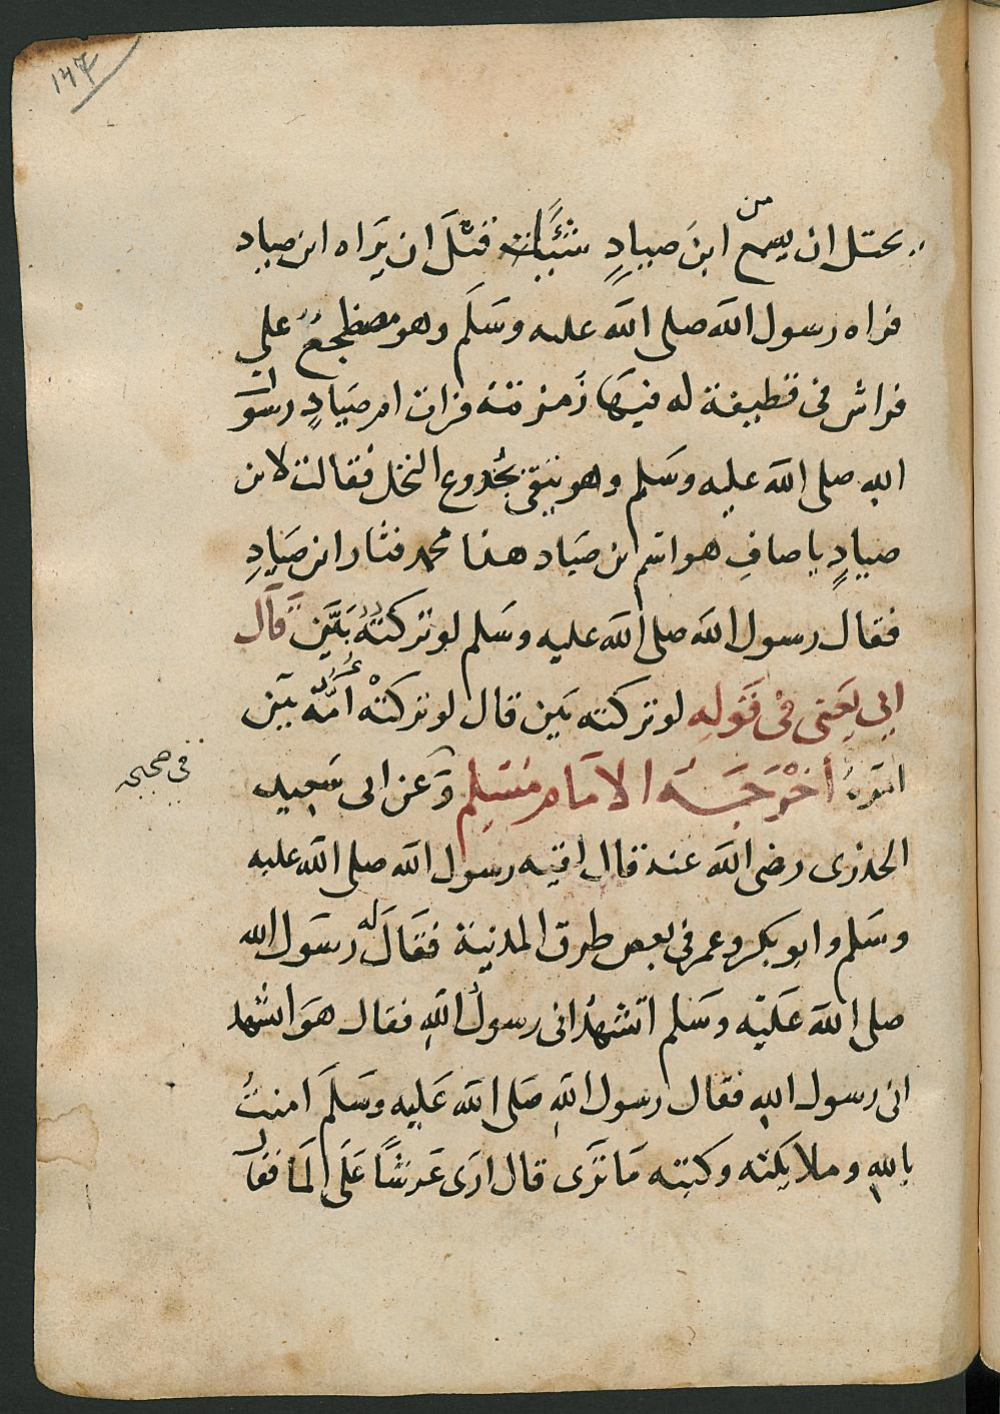 ١٣٧
يختل ان يسمع من ابن صياد شيئا قبل ان يراه ابن صياد
فراه رسول الله صلى الله عليه وسلم وهو مضطجع على
فراش في قطيفة له فيها زمزمة فرات ام صياد رسول
الله صلى الله عليه وسلم وهو يتقي بجذوع النخل فقالت لابن
صياد يا صاف هو اسم ابن صياد هذا محمد فثار ابن صياد
فقال رسول الله صلى الله عليه وسلم لو تركته بين قال
ابي يعني في قوله لو تركته بين قال لو تركته امه بين
امره اخرجه الامام مسلم وعن ابي سعيد
في صحيحه
الخدري رضي الله عنه قال لقيه رسول الله صلى الله عليه
وسلم وابو بكر وعمر في بعض طرق المدينة فقال له رسول الله
صلى الله عليه وسلم اتشهد اني رسول الله فقال هو اتشهد
اني رسول الله فقال رسول الله صلى الله عليه وسلم امنت
بالله وملايكته وكتبه ما ترى قال ارى عرشا على الما فقال